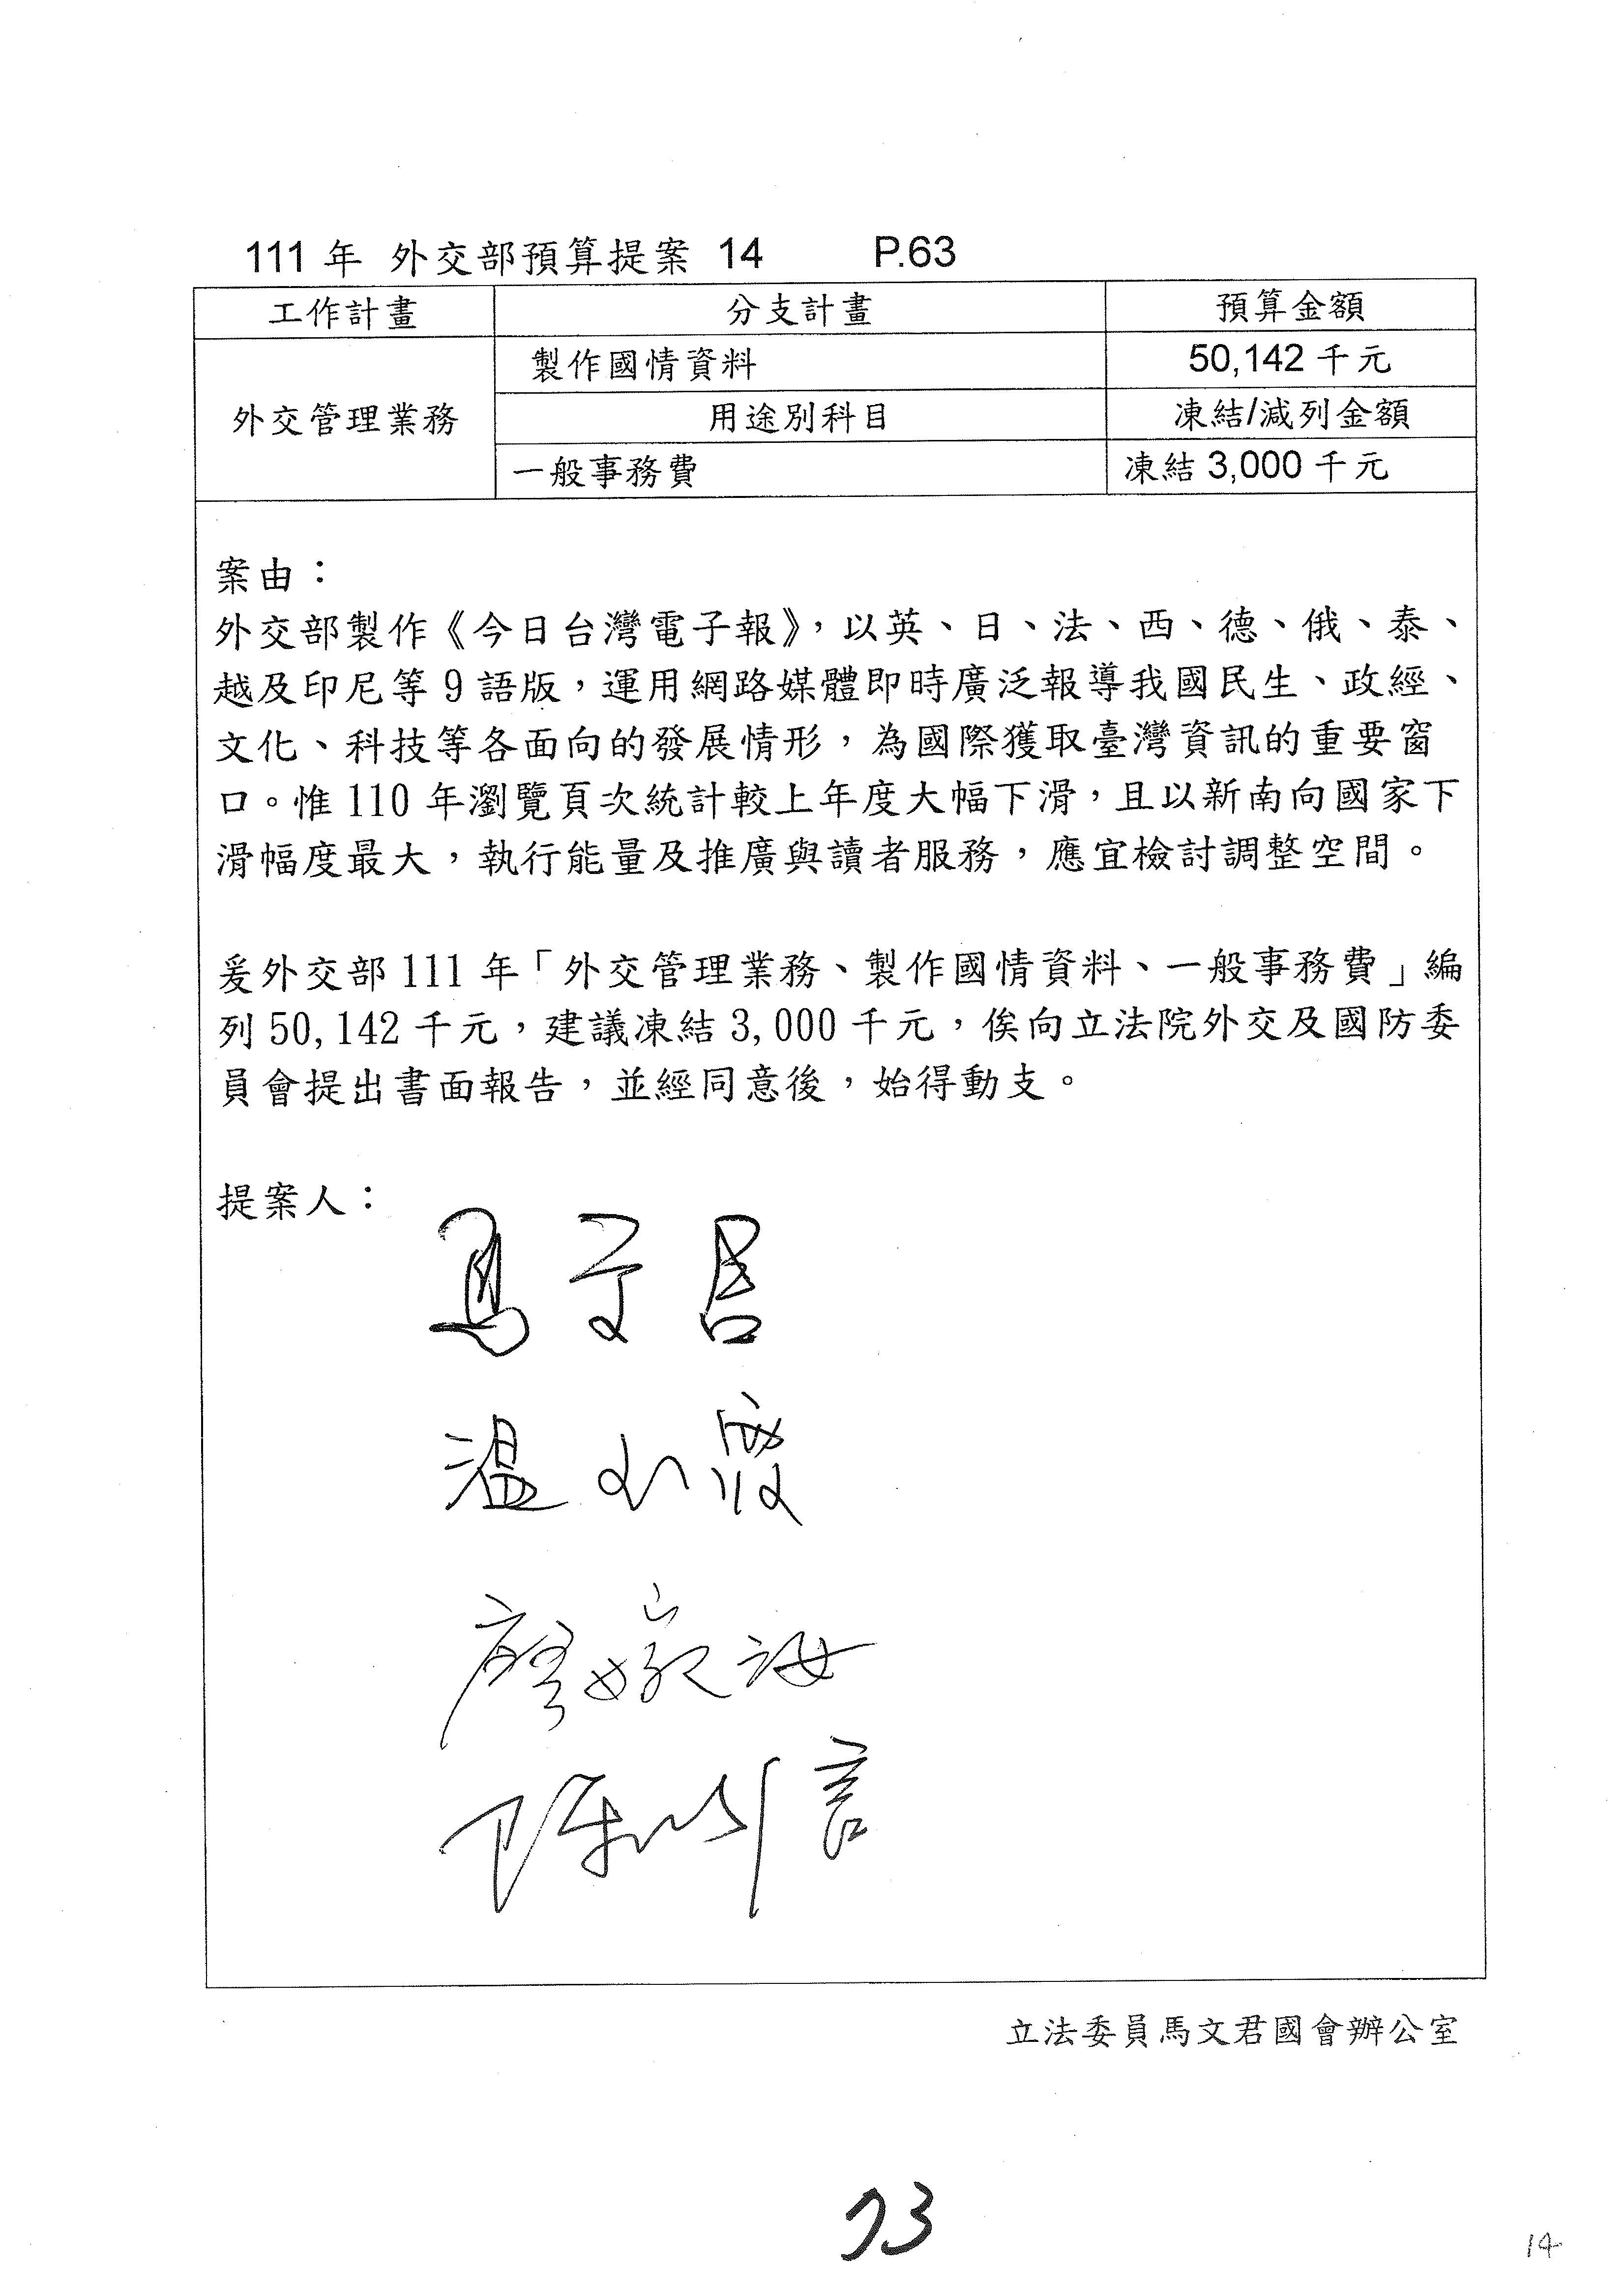 111 年 外交部預算提案 14 P.63
工作計畫 分支計畫 預算金額
製作國情資料 50,142 千元
外交管理業務 用途別科目 凍結/減列金額
一般事務費 凍結 3,000 千元
案由：
外交部製作《今日台灣電子報》，以英、日、法、西、德、俄、泰、
越及印尼等 9 語版，運用網路媒體即時廣泛報導我國民生、政經、
文化、科技等各面向的發展情形，為國際獲取臺灣資訊的重要窗
口。惟 110 年瀏覽頁次統計較上年度大幅下滑，且以新南向國家下
滑幅度最大，執行能量及推廣與讀者服務，應宜檢討調整空間。
爰外交部 111 年「外交管理業務、製作國情資料、一般事務費」編
列 50,142 千元，建議凍結 3,000 千元，俟向立法院外交及國防委
員會提出書面報告，並經同意後，始得動支。
提案人：
馬文君
溫玉霞
廖婉汝
陳以信
立法委員馬文君國會辦公室
73
14